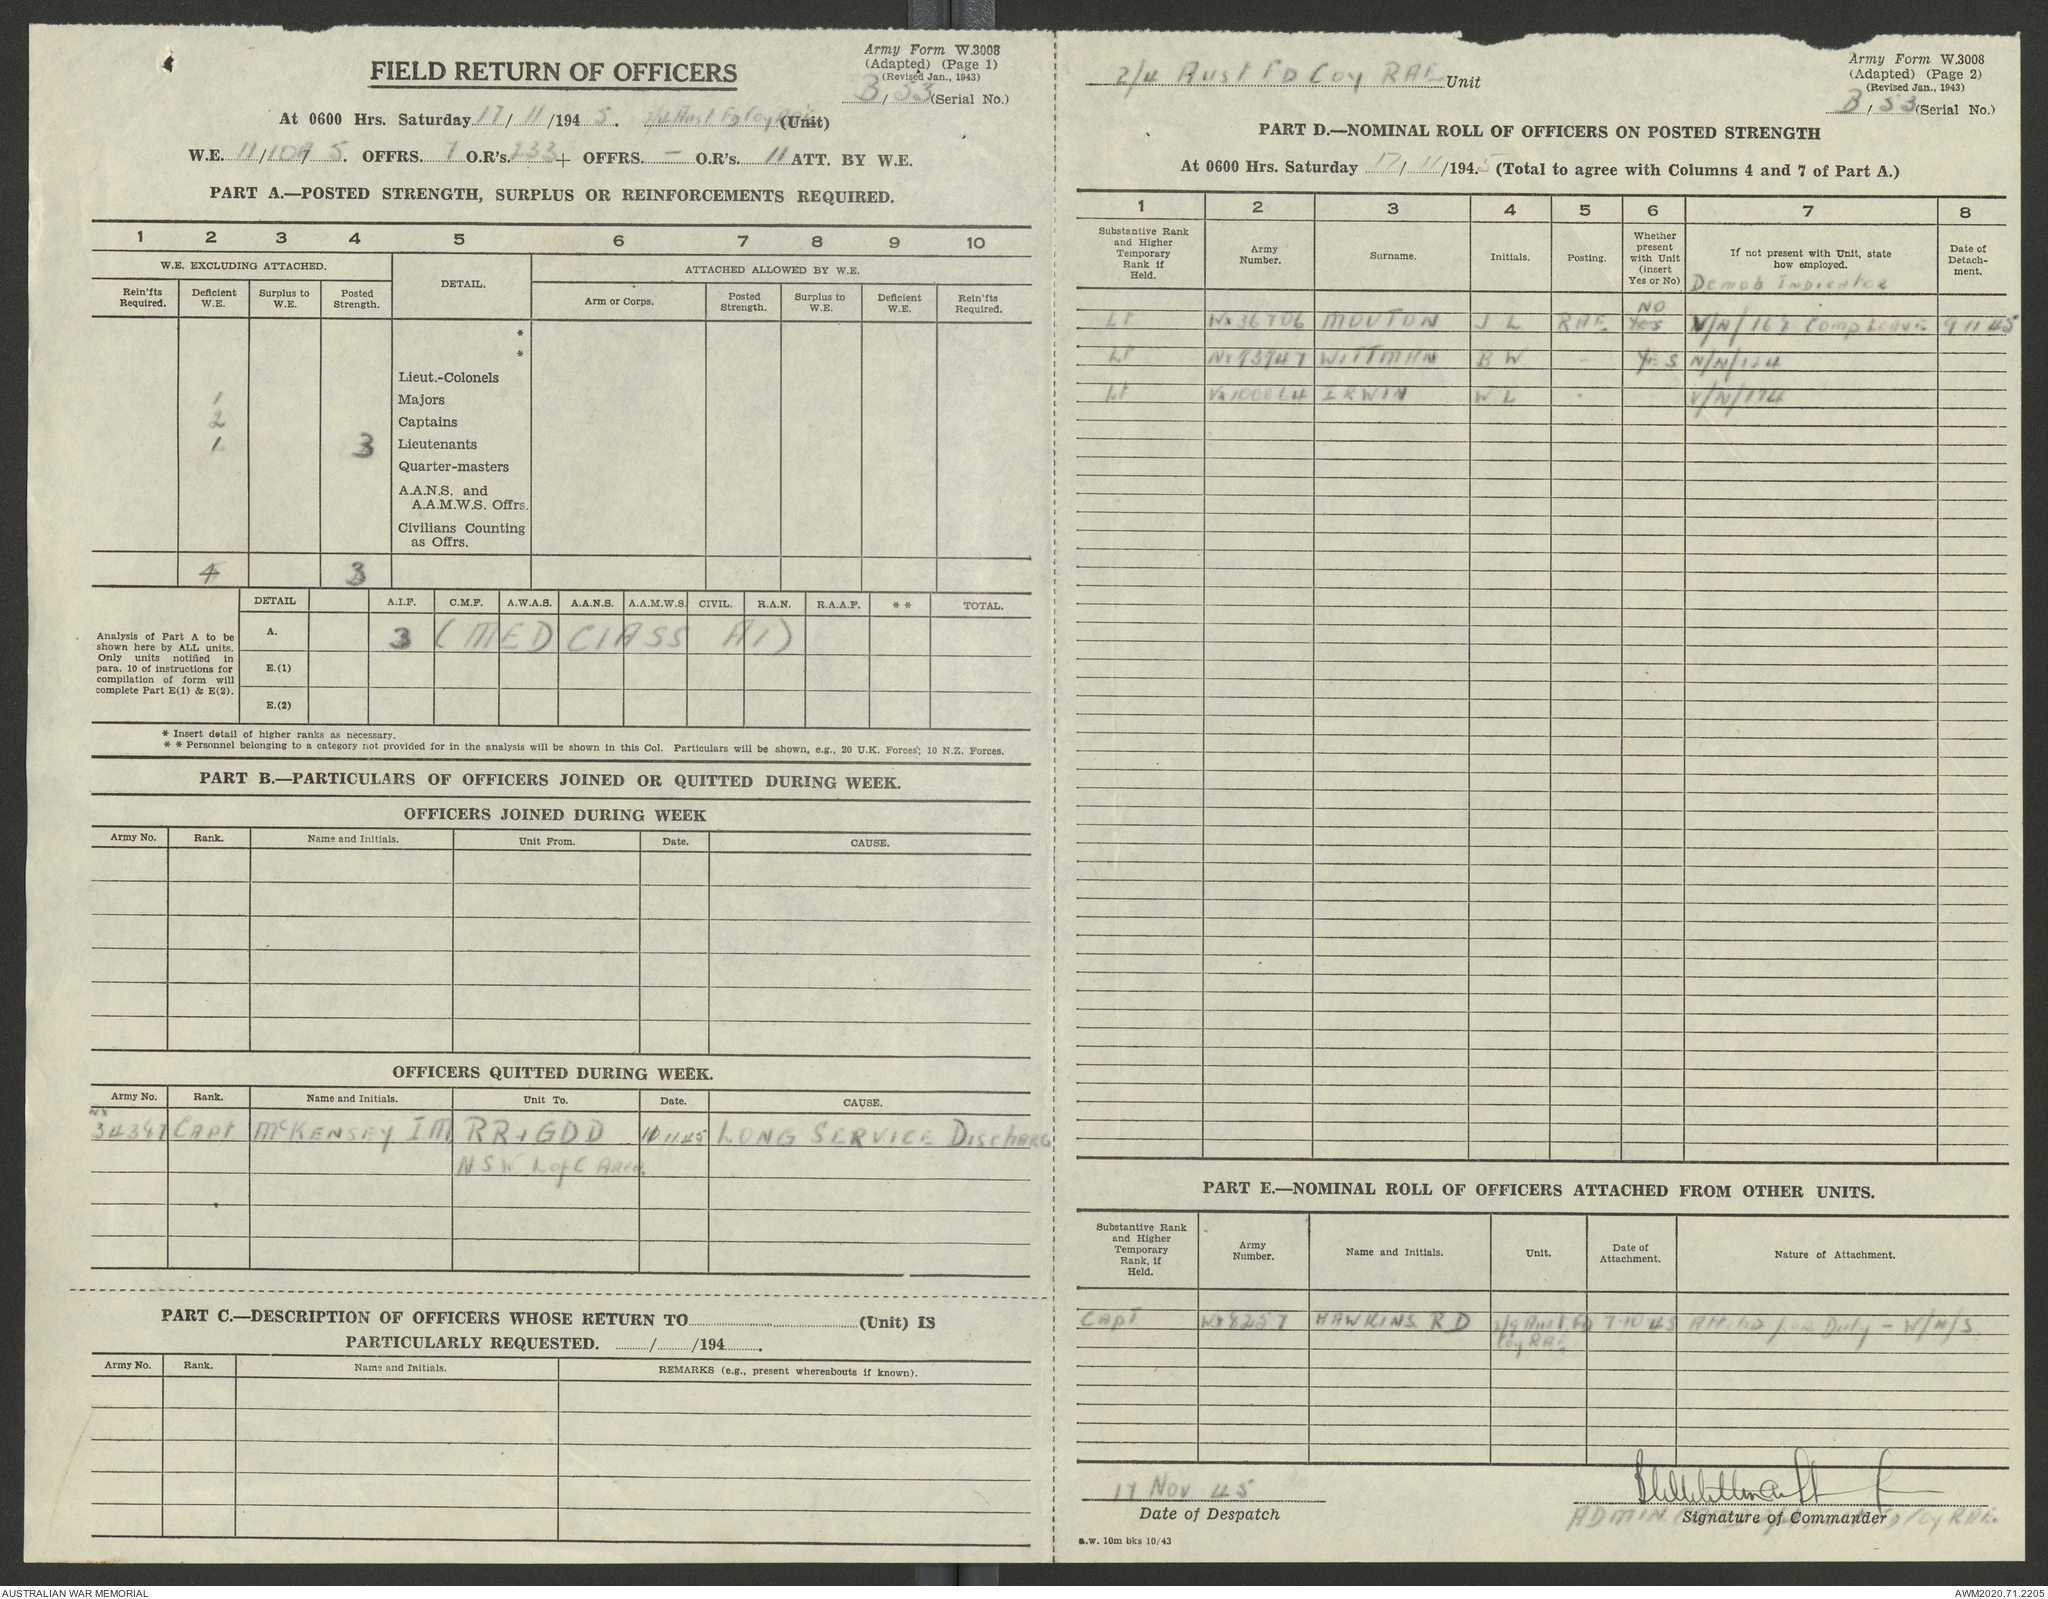 Army Form W.3008
(Adapted) (Page 1)
(Revised Jan., 1943)
B/53 (Serial No.)
FIELD RETURN OF OFFICERS
At 0600 Hrs. Saturday 17/11/1945. 2/4 Aust Fd Coy RAE (Unit)
W.E. 11/109/5. OFFRS. 7 O.R's. 233 + OFFRS. — O.R's. 11 ATT. BY W.E.
PART A.—POSTED STRENGTH, SURPLUS OR REINFORCEMENTS REQUIRED.
1 2 3 4 5 6 7 8 9 10
W.E. EXCLUDING ATTACHED. DETAIL. ATTACHED ALLOWED BY W.E.
Rein'fts Required. Deficient W.E. Surplus to W.E. Posted Strength. Arm or Corps. Posted Strength. Surplus to W.E. Deficient W.E. Rein'fts Required.
*
*
Lieut.-Colonels
1 Majors
2 Captains
1 3 Lieutenants
Quarter-masters
A.A.N.S. and
A.A.M.W.S. Offrs.
Civilians Counting
as Offrs.
4 3
DETAIL A.I.F. C.M.F. A.W.A.S. A.A.N.S. A.A.M.W.S. CIVIL. R.A.N. R.A.A.F. ** TOTAL.
Analysis of Part A to be
shown here by ALL units.
Only units notified in
para. 10 of instructions for
compilation of form will
complete Part E(1) & E(2).
A. 3 (MED CLASS A1)
E.(1)
E.(2)
* Insert detail of higher ranks as necessary.
** Personnel belonging to a category not provided for in the analysis will be shown in this Col. Particulars will be shown, e.g., 20 U.K. Forces; 10 N.Z. Forces.
PART B.—PARTICULARS OF OFFICERS JOINED OR QUITTED DURING WEEK.
OFFICERS JOINED DURING WEEK
Army No. Rank. Name and Initials. Unit From. Date. CAUSE.
OFFICERS QUITTED DURING WEEK.
Army No. Rank. Name and Initials. Unit To. Date. CAUSE.
NX
34347 CAPT McKENSEY I M RR & GDD 10 11 45 LONG SERVICE Discharg
NSW L of C AREA
PART C.—DESCRIPTION OF OFFICERS WHOSE RETURN TO (Unit) IS
PARTICULARLY REQUESTED. / /194 .
Army No. Rank. Name and Initials. REMARKS (e.g., present whereabouts if known).
2/4 Aust FD Coy RAE Unit
Army Form W.3008
(Adapted) (Page 2)
(Revised Jan., 1943)
B/53 (Serial No.)
PART D.—NOMINAL ROLL OF OFFICERS ON POSTED STRENGTH
At 0600 Hrs. Saturday 17/11/1945 (Total to agree with Columns 4 and 7 of Part A.)
1 2 3 4 5 6 7 8
Substantive Rank and Higher Temporary Rank if Held. Army Number. Surname. Initials. Posting. Whether present with Unit (insert Yes or No) If not present with Unit, state how employed. Date of Detachment.
Demob Indicator
NO
Lt NX36706 MOUTON J L RAE YES V/N/167 Comp Leave 9 11 45
Lt NX93947 WITTMAN B W - YES N/N/174
Lt VX100864 IRWIN W L - V/N/174
PART E.—NOMINAL ROLL OF OFFICERS ATTACHED FROM OTHER UNITS.
Substantive Rank and Higher Temporary Rank, if Held. Army Number. Name and Initials. Unit. Date of Attachment. Nature of Attachment.
Capt WX8257 HAWKINS R D 2/9 Aust Fd 7-10 45 Attchd for Duty - W/N/S
Coy RAE
17 Nov 45
Date of Despatch
Signature of Commander
ADMIN Coy RAE.
a.w. 10m bks 10/43
AUSTRALIAN WAR MEMORIAL
AWM2020.71.2205